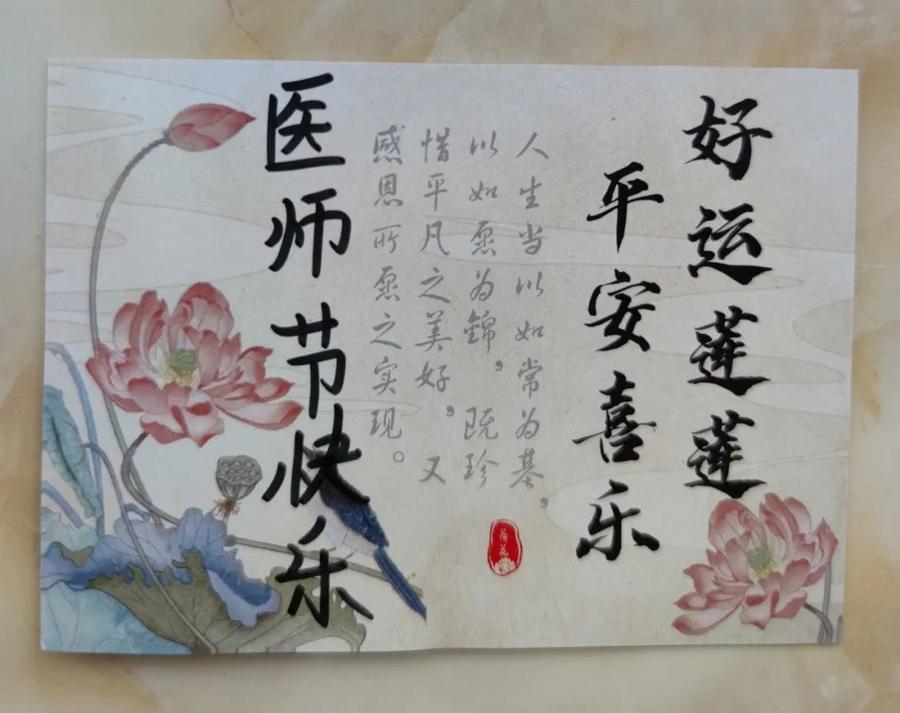 好运莲莲
平安喜乐
人生当以如常为基，
以如愿为锦。既珍
惜平凡之美好。又
感恩所愿之实现。
医师节快乐
荷花